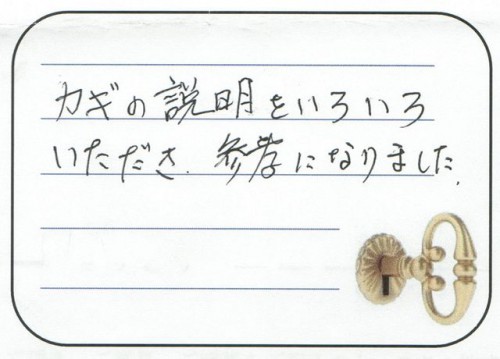 カギの説明をいろいろ
いただき、参考になりました。